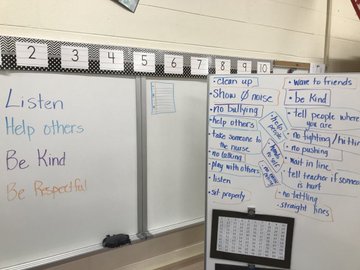 2 3 4 5 6 7 8 9 10
Listen
Help others
Be Kind
Be Respectful
clean up
Show Ø noise
no bullying
help others
take someone to
the nurse
no talking
play with others
listen
sit properly
wave to friends
Be Kind
tell people where
you are
no fighting/hitting
no pushing
wait in line
tell teacher if someone
is hurt
no tattling
straight lines